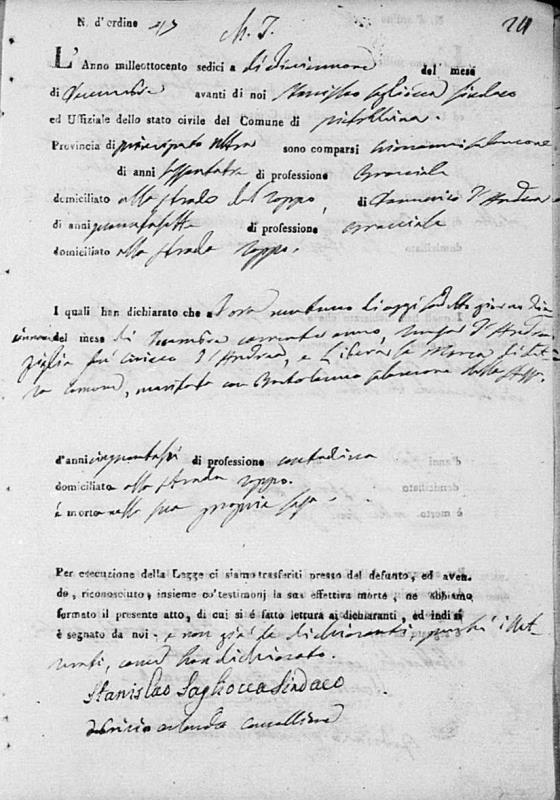 N. d'ordine 47 M. T. 24
L' Anno milleottocento sedici a di diciannove del mese
di Decembre avanti di noi Stanislao Sagliocca Sindaco
ed Uffiziale dello stato civile del Comune di
Provincia di principato ultra sono comparsi
di anni sessantatre di professione Bracciale
domiciliato alla strada del Zoppo, di Domenico d'Andrea
di anni quarantasette di professione Bracciale
domiciliato alla strada Zoppo.
I quali han dichiarato che a ora ventuno di oggi sudetto giorno dici
annove del mese di Decembre corrente anno, d'Andrea
figlia fu Cirieco d'Andrea, e Libera la Marca di det-
to comune, maritata con Bartolomeo
d'anni cinquantasei di professione contadina
domiciliato alla strada Zoppo.
é morto nella sua propria casa.
Per esecuzione della Legge ci siamo trasferiti presso del defunto, ed aven-
do, riconosciuto, insieme co'testimonj la sua effettiva morte, ne abbiamo
formato il presente atto, di cui si é fatto lettura ai dichiaranti, ed indi si
é segnato da noi e non già da dichiaranti perché illet-
terati, come han dichiarato.
Stanislao Sagliocca Sindaco
cancelliere